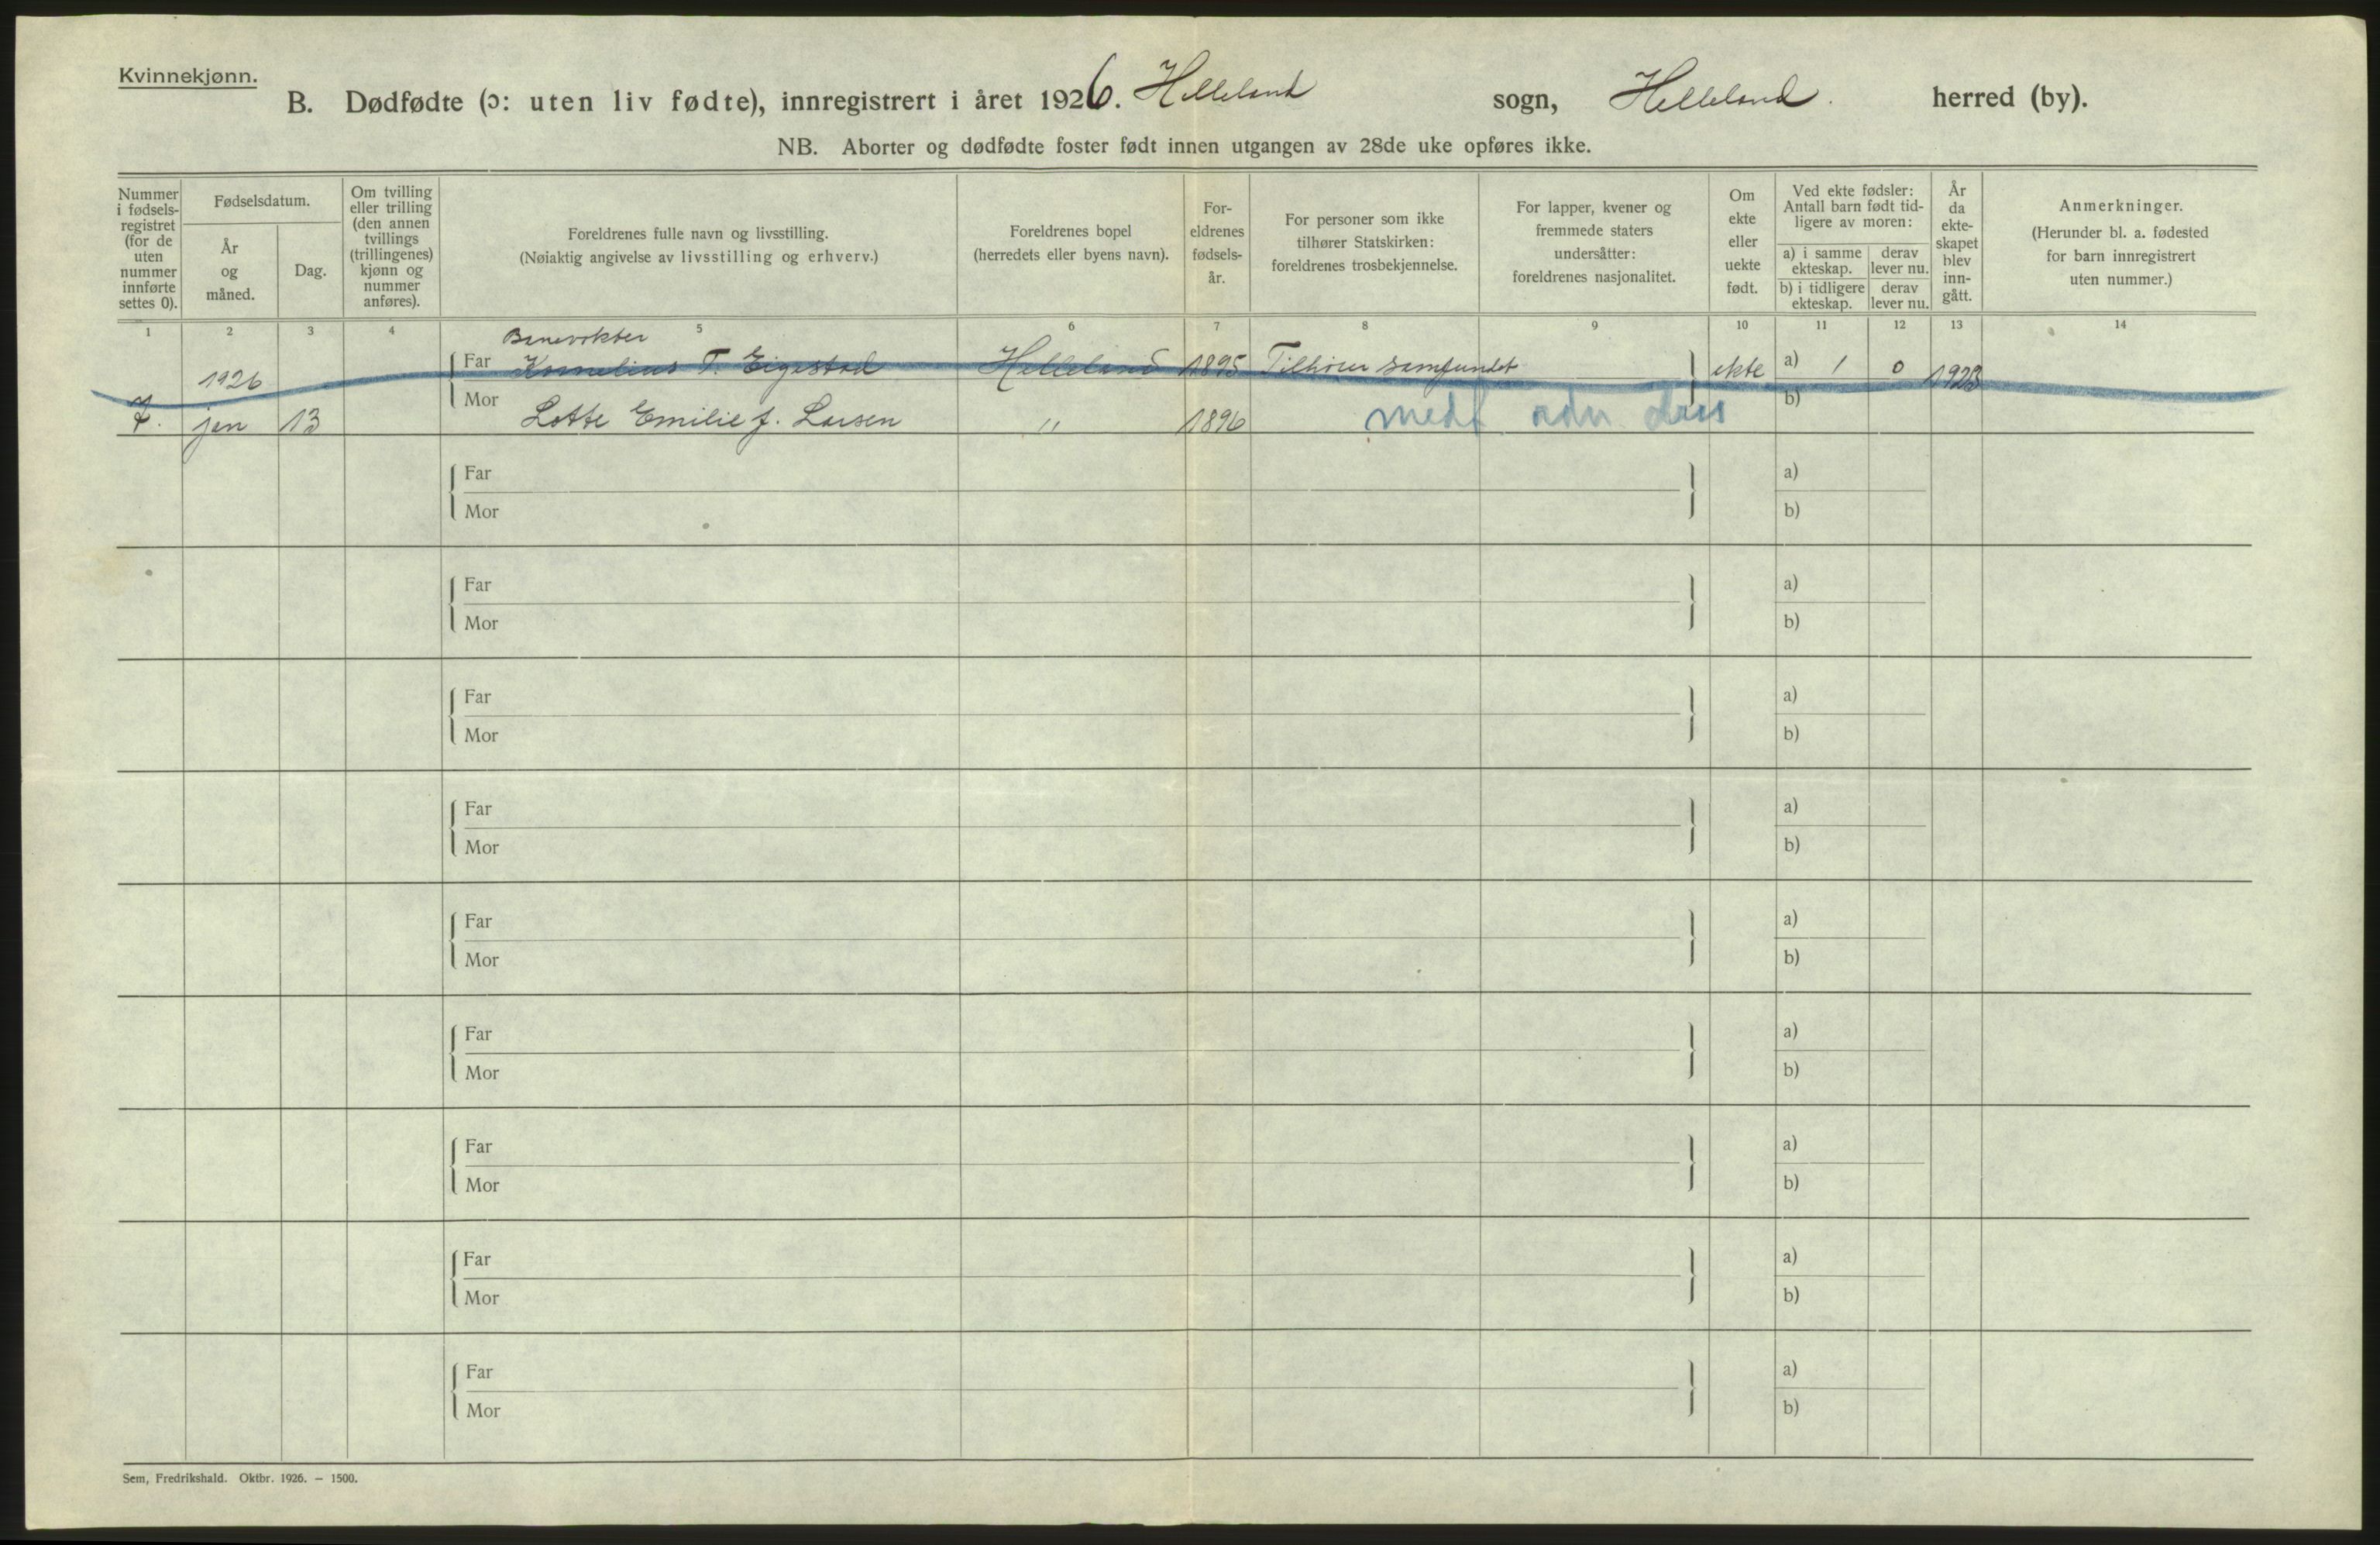 Kvinnekjønn.
B. Dødfødte (ɔ: uten liv fødte), innregistrert i året 1926. Helleland sogn, Helleland herred (by).
NB. Aborter og dødfødte foster født innen utgangen av 28de uke opføres ikke.
Nummer i fødsels-registret (for de uten nummer innførte settes 0).
Fødselsdatum.
År og måned.
Dag.
Om tvilling eller trilling (den annen tvillings (trillingenes) kjønn og nummer anføres).
Foreldrenes fulle navn og livsstilling.
(Nøiaktig angivelse av livsstilling og erhverv.)
Foreldrenes bopel
(herredets eller byens navn).
For-eldrenes fødsels-år.
For personer som ikke tilhører Statskirken: foreldrenes trosbekjennelse.
For lapper, kvener og fremmede staters undersåtter: foreldrenes nasjonalitet.
Om ekte eller uekte født.
Ved ekte fødsler: Antall barn født tid-ligere av moren:
a) i samme ekteskap. derav lever nu.
b) i tidligere ekteskap. derav lever nu.
År da ekte-skapet blev inn-gått.
Anmerkninger.
(Herunder bl. a. fødested for barn innregistrert uten nummer.)
1 2 3 4 5 6 7 8 9 10 11 12 13 14
Banevokter
1926 Far Kornelius T. Eigestad Helleland 1895 Tilhører samfundet ekte a) 1 0 1923
7. jan 13 Mor Lotte Emilie f. Larsen " 1896 b)
Far a)
Mor b)
Far a)
Mor b)
Far a)
Mor b)
Far a)
Mor b)
Far a)
Mor b)
Far a)
Mor b)
Far a)
Mor b)
Far a)
Mor b)
Far a)
Mor b)
Sem, Fredrikshald. Oktbr. 1926. – 1500.